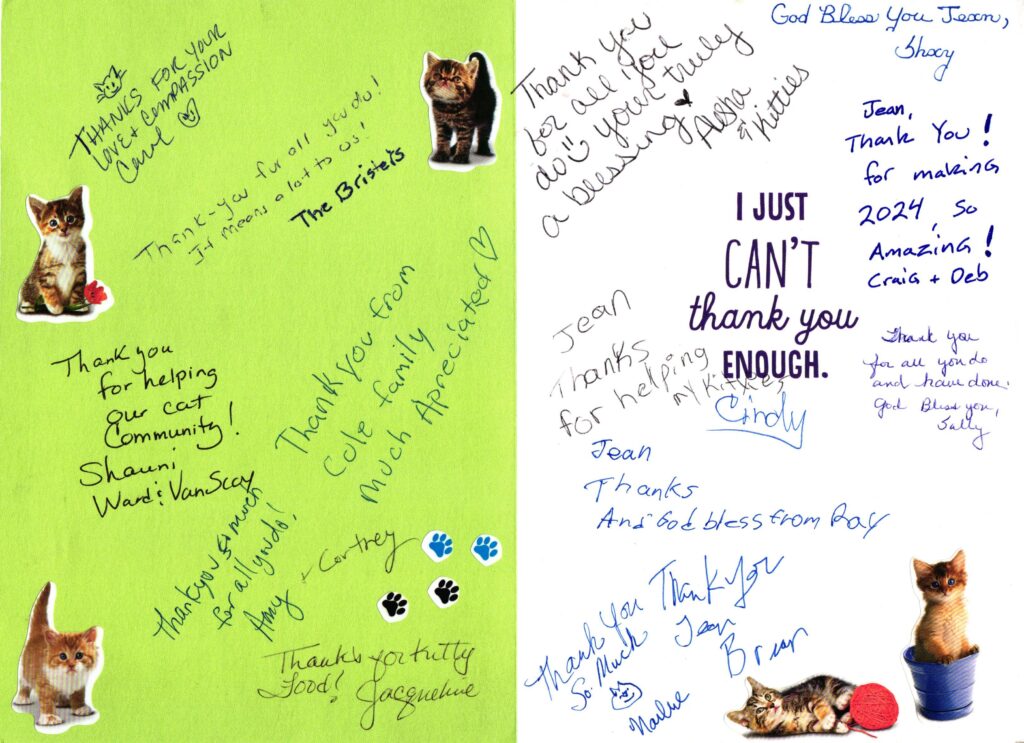 THANKS FOR YOUR
LOVE & COMPASSION
Carol
Thank-you for all you do!
It means a lot to us!
The Bristers
Thank you
for helping
our cat
Community!
Shauni
Ward & VanScoy
Thank you from
Cole family
much Appreciated
Thank you so much
for all you do!
Amy + Cortney
Thanks for Kitty
Food!
Jacqueline
Thank you
for all you
do your truly
a blessing
Alisha
& Kitties
God Bless You Jean,
Jean,
Thank You!
for making
2024, So
Amazing!
Craig + Deb
I JUST
CAN'T
thank you
ENOUGH.
Jean
Thanks
for helping
my Kitties
Cindy
Thank you
for all you do
and have done.
God Bless you,
Sally
Jean
Thanks
And God bless from Ray
Thank You
So Much
Thank you
Jean
Brian